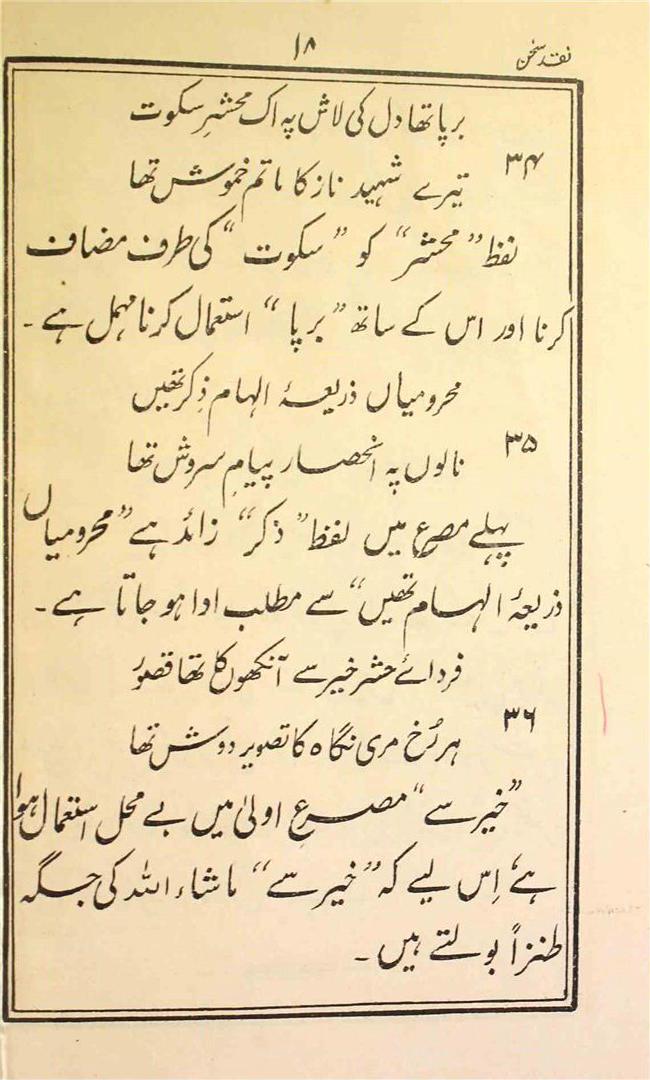 نقد سخن
۱۸
برپا تھا دل کی لاش پہ اک محشرِ سکوت
۳۴
تیرے شہید ناز کا ماتم خموش تھا
لفظ ”محشر“ کو ”سکوت“ کی طرف مضاف
کرنا اور اس کے ساتھ ”برپا“ استعمال کرنا مہمل ہے۔
محرومیاں ذریعۂ الہام ذِکر تھیں
۳۵
نالوں پہ انحصار پیامِ سروش تھا
پہلے مصرع میں لفظ ”ذکر“ زائد ہے ”محرومیاں
ذریعۂ الہام تھیں“ سے مطلب ادا ہو جاتا ہے۔
فردائے حشر خیر سے آنکھوں کا تھا قصور
۳۶
ہر رُخ مری نگاہ کا تصویر دوش تھا
”خیر سے“ مصرعِ اولیٰ میں بے محل استعمال ہوا
ہے، اِس لیے کہ ”خیر سے“ ماشاء اللہ کی جگہ
طنزاً بولتے ہیں۔